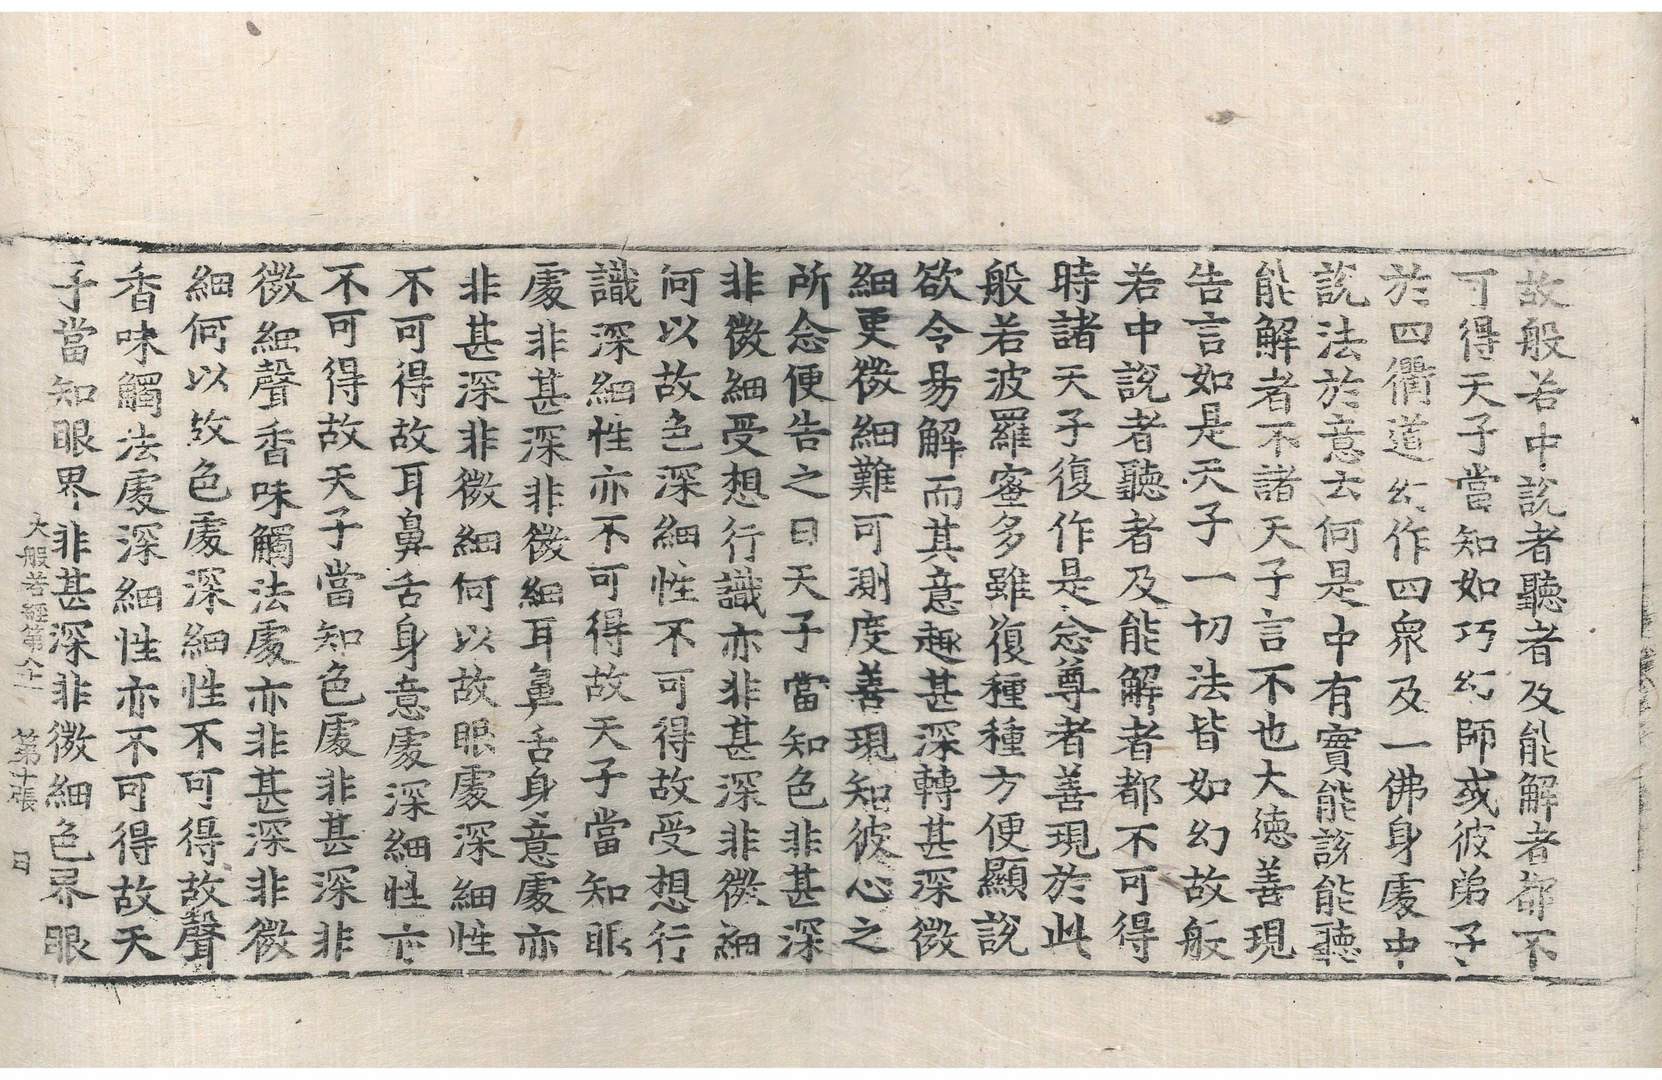 故般若中說者聽者及能解者都不
可得天子當知如巧幻師或彼弟子
於四衢道幻作四衆及一佛身處中
說法於意云何是中有實能說能聽
能解者不諸天子言不也大德善現
告言如是天子一切法皆如幻故般
若中說者聽者及能解者都不可得
時諸天子復作是念尊者善現於此
般若波羅蜜多雖復種種方便顯說
欲令易解而其意趣甚深轉甚深微
細更微細難可測度善現知彼心之
所念便告之曰天子當知色非甚深
非微細受想行識亦非甚深非微細
何以故色深細性不可得故受想行
識深細性亦不可得故天子當知眼
處非甚深非微細耳鼻舌身意處亦
非甚深非微細何以故眼處深細性
不可得故耳鼻舌身意處深細性亦
不可得故天子當知色處非甚深非
微細聲香味觸法處亦非甚深非微
細何以故色處深細性不可得故聲
香味觸法處深細性亦不可得故天
子當知眼界非甚深非微細色界眼
大般若經第八十一 第十張 日